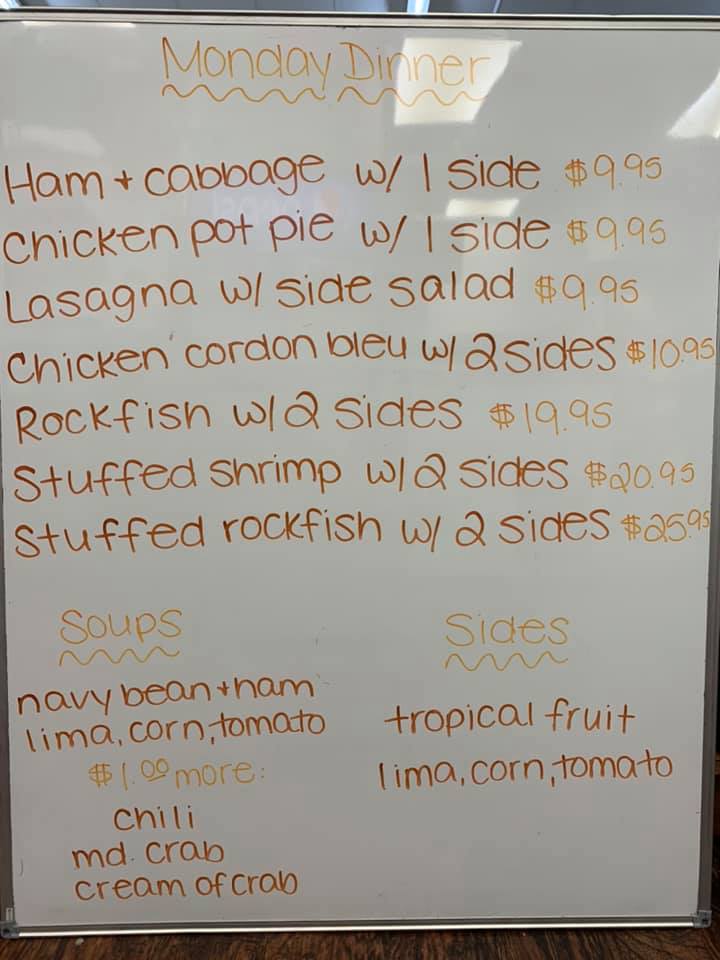 Monday Dinner
Ham + cabbage w/ 1 side $9.95
Chicken pot pie w/ 1 side $9.95
Lasagna w/ side salad $9.95
Chicken cordon bleu w/ 2 sides $10.95
Rockfish w/ 2 sides $19.95
Stuffed shrimp w/ 2 sides $20.95
Stuffed rockfish w/ 2 sides $25.95
Soups
navy bean + ham
lima, corn, tomato
$1.00 more:
chili
md. crab
cream of crab
Sides
tropical fruit
lima, corn, tomato